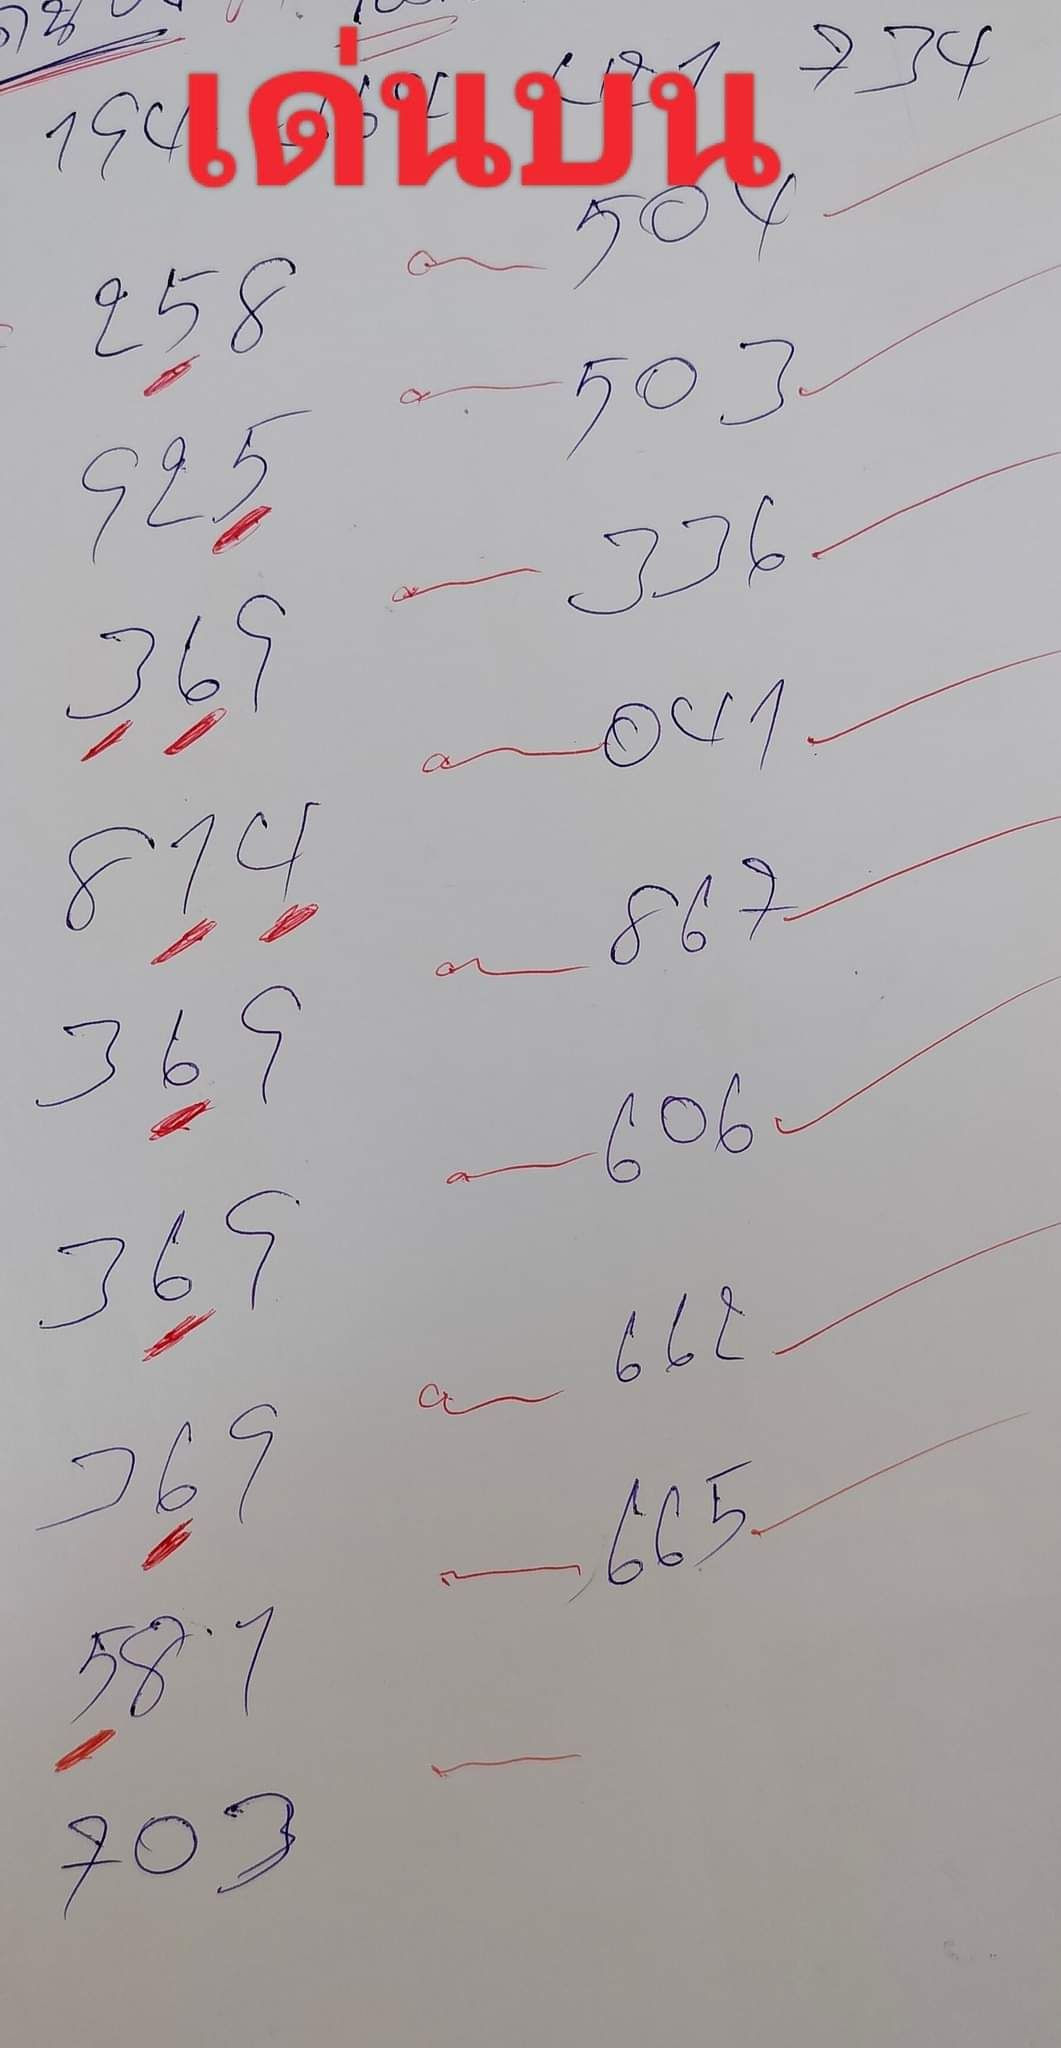 เด่นบน
194 734
258 504
925 503
369 336
814 041
369 867
369 606
369 662
581 665
703